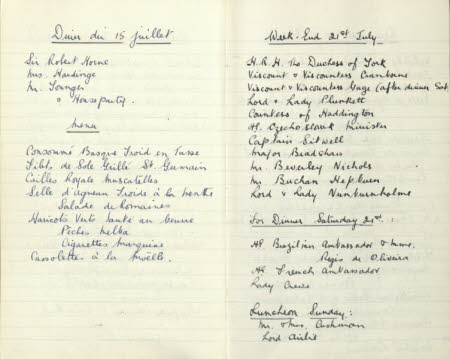 Diner du 15 juillet
Sir Robert Horne
Mrs. Hardinge
Mr. Younger
& Houseparty.
Menu
Consommé Basque Froid en Tasse
Filets de Sole Grillé St. Germain
Cailles Royale Muscatelles
Selle d'Agneau Froide à la Menthe
Salade de Romaines
Haricots Verts Sauté au beurre
Pêches Melba
Cigarettes Marquise
Cassolettes à la Moëlle.
Week-End 21st July
H.R.H. The Duchess of York
Viscount & Viscountess Cranborne
Viscount & Viscountess Gage (after dinner Sat.
Lord & Lady Plunkett
Countess of Haddington
HE Czechoslovak Minister
Captain Sitwell
Major Bradshaw
Mr. Beverley Nichols
Mr Buchan Hepburn
Lord & Lady Nunburnholme
For Dinner Saturday 21st:
HE Brazilian Ambassador & Mme.
Regis de Oliveira
HE French Ambassador
Lady Crewe
Luncheon Sunday:
Mr. & Mrs. Cushman
Lord Airlie